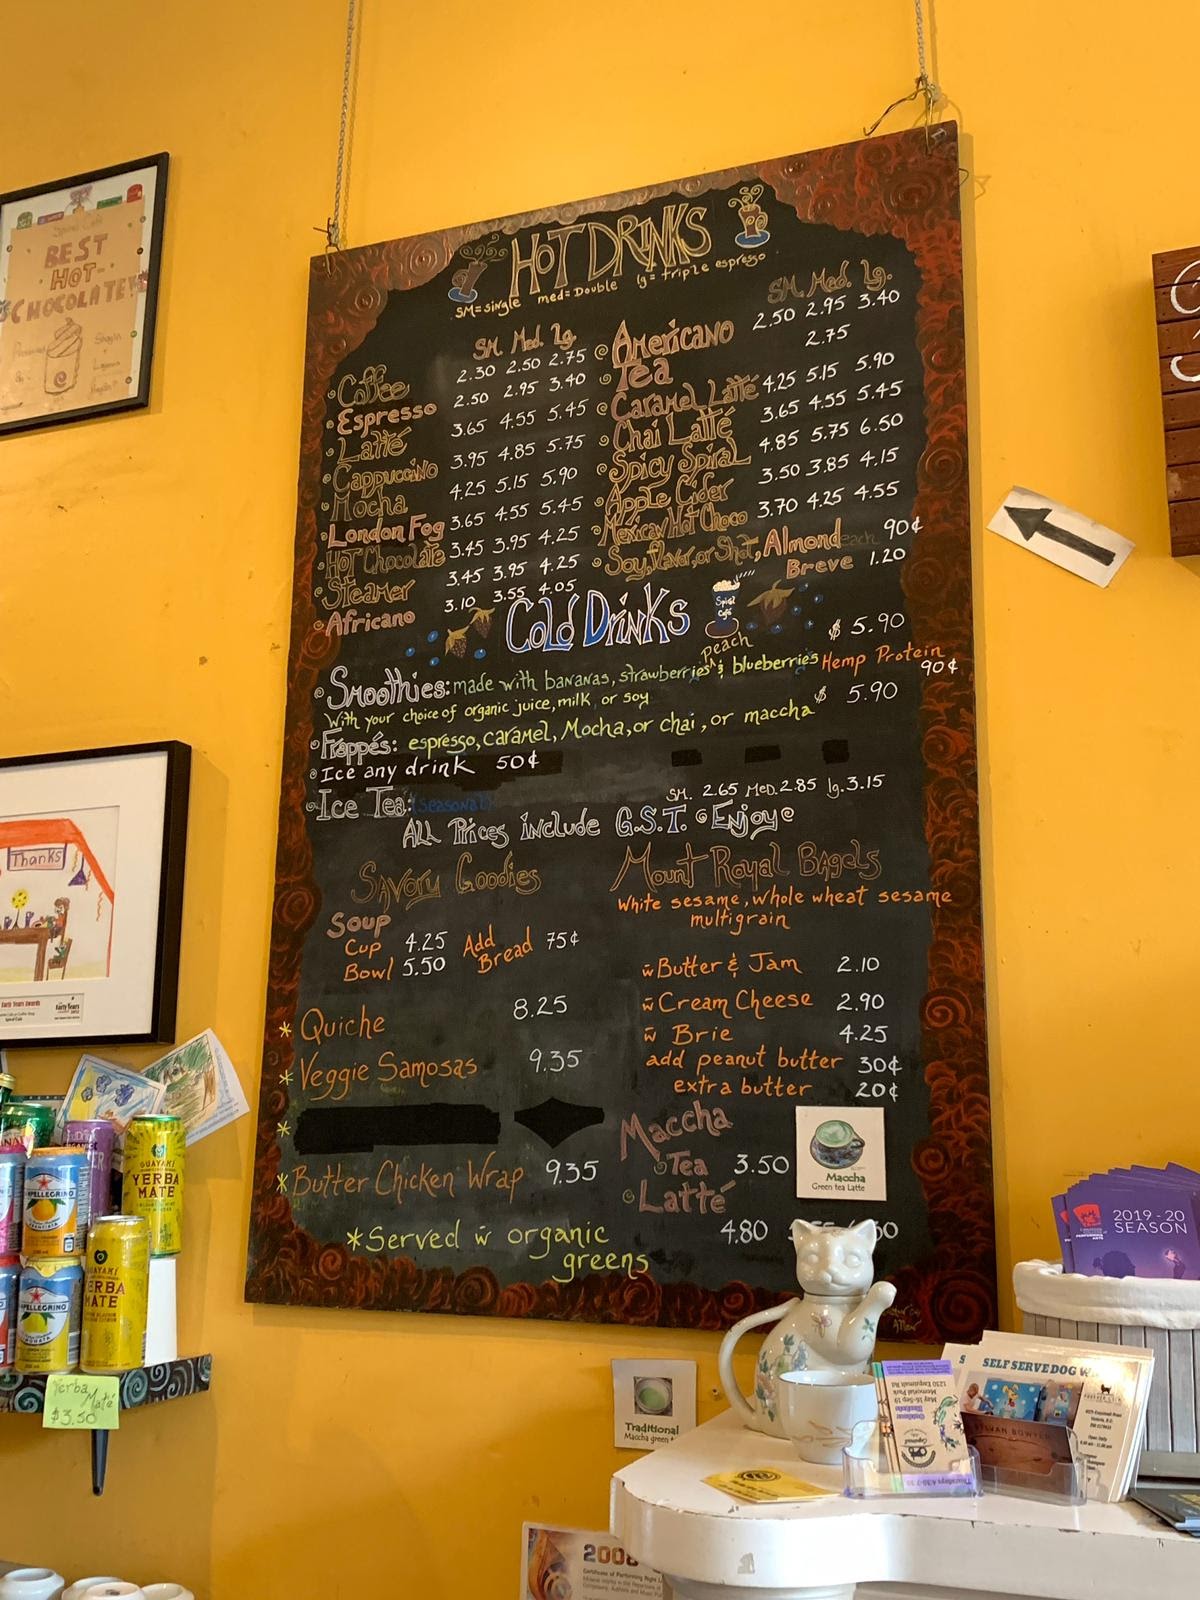 HOT DRINKS
SM=single med=Double lg=triple espresso
SM. Med. Lg.
Coffee 2.30 2.50 2.75
Espresso 2.50 2.95 3.40
Latté 3.65 4.55 5.45
Cappuccino 3.95 4.85 5.75
Mocha 4.25 5.15 5.90
London Fog 3.65 4.55 5.45
Hot Chocolate 3.45 3.95 4.25
Steamer 3.45 3.95 4.25
Africano 3.10 3.55 4.05
SM. Med. Lg.
Americano 2.50 2.95 3.40
Tea 2.75
Caramel Latté 4.25 5.15 5.90
Chai Latté 3.65 4.55 5.45
Spicy Spiral 4.85 5.75 6.50
Apple Cider 3.50 3.85 4.15
Mexican Hot Choco 3.70 4.25 4.55
Soy, flavor, or Shot, Almond each 90¢
Breve 1.20
Cold Drinks
Spiral Café
Smoothies: made with bananas, strawberries ^peach & blueberries $ 5.90
Hemp Protein 90¢
With your choice of organic juice, milk, or soy
Frappés: espresso, caramel, Mocha, or chai, or maccha $ 5.90
Ice any drink 50¢
Ice Tea: (seasonal) SM. 2.65 MeD. 2.85 lg. 3.15
All Prices include G.S.T. Enjoy
Savory Goodies
Soup
Cup 4.25 Add Bread 75¢
Bowl 5.50
* Quiche 8.25
* Veggie Samosas 9.35
*
* Butter Chicken Wrap 9.35
*Served w̄ organic
greens
Mount Royal Bagels
White sesame, whole wheat sesame
multigrain
w̄ Butter & Jam 2.10
w̄ Cream Cheese 2.90
w̄ Brie 4.25
add peanut butter 30¢
extra butter 20¢
Maccha
Tea 3.50
Latté
4.80
Maccha
Green tea Latte
BEST
HOT-
CHOCOLATE
Thanks
GUAYAKI
YERBA
MATE
GUAYAKI
YERBA
MATE
PELLEGRINO
PELLEGRINO
Yerba
Maté
$3.50
Traditional
Maccha green
2019 - 20
SEASON
SELF SERVE DOG
2008
Certificate of Performing Right